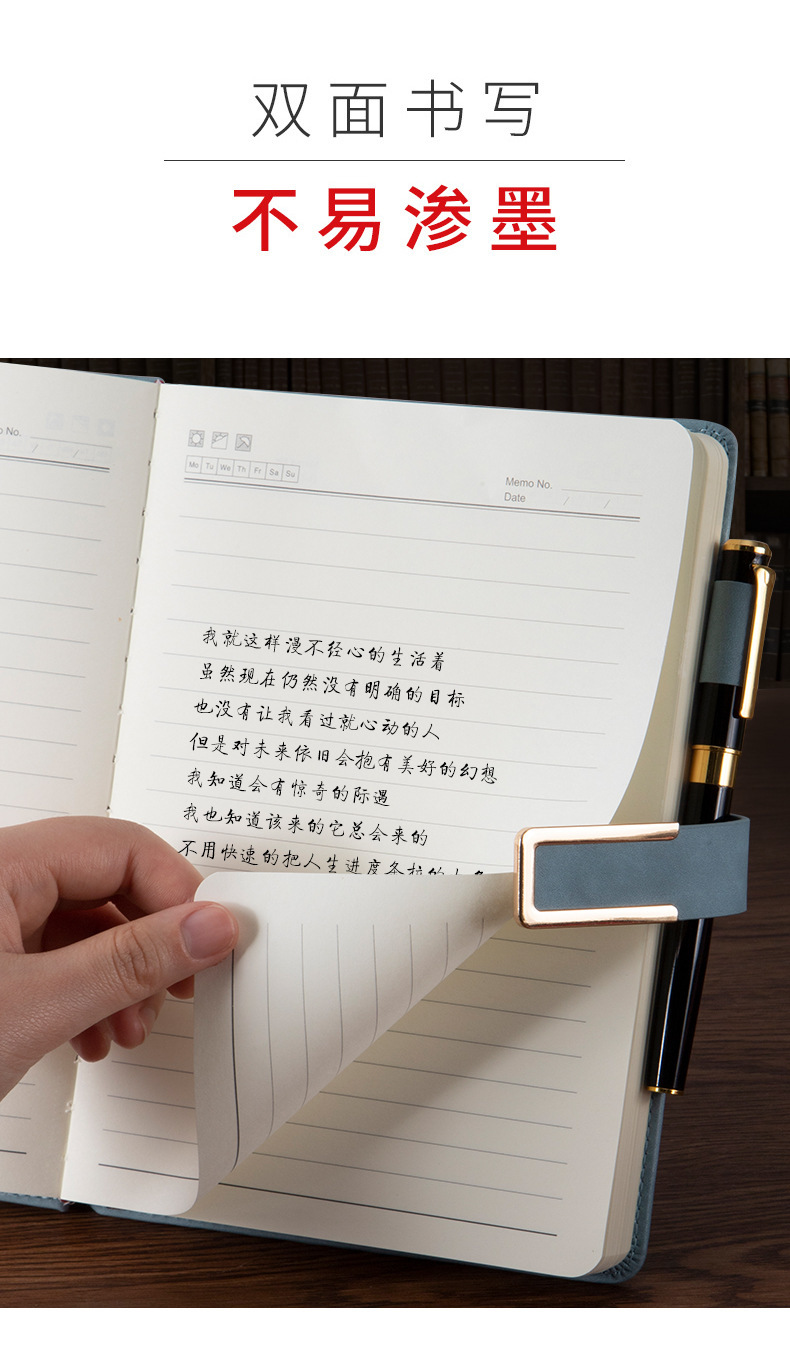 双面书写
不易渗墨
No.
/ /
Mo Tu We Th Fr Sa Su
Memo No.
Date / /
我就这样漫不经心的生活着
虽然现在仍然没有明确的目标
也没有让我看过就心动的人
但是对未来依旧会抱有美好的幻想
我知道会有惊奇的际遇
我也知道该来的它总会来的
不用快速的把人生进度条拉的